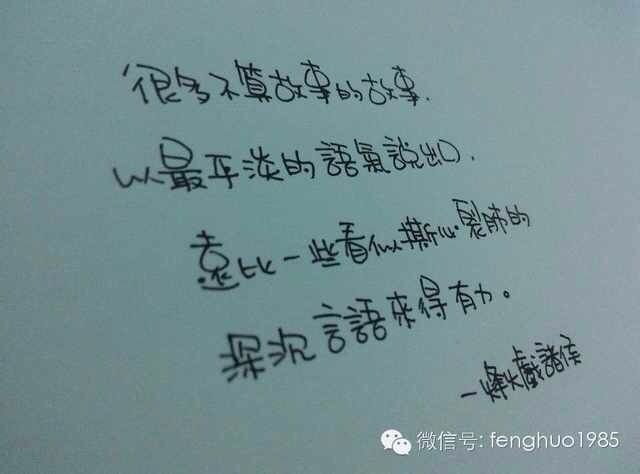 很多不算故事的故事.
以最平淡的語氣說出口.
遠比一些看似撕心裂肺的
深沉言語來得有力。
—烽火戲諸侯
微信号: fenghuo1985